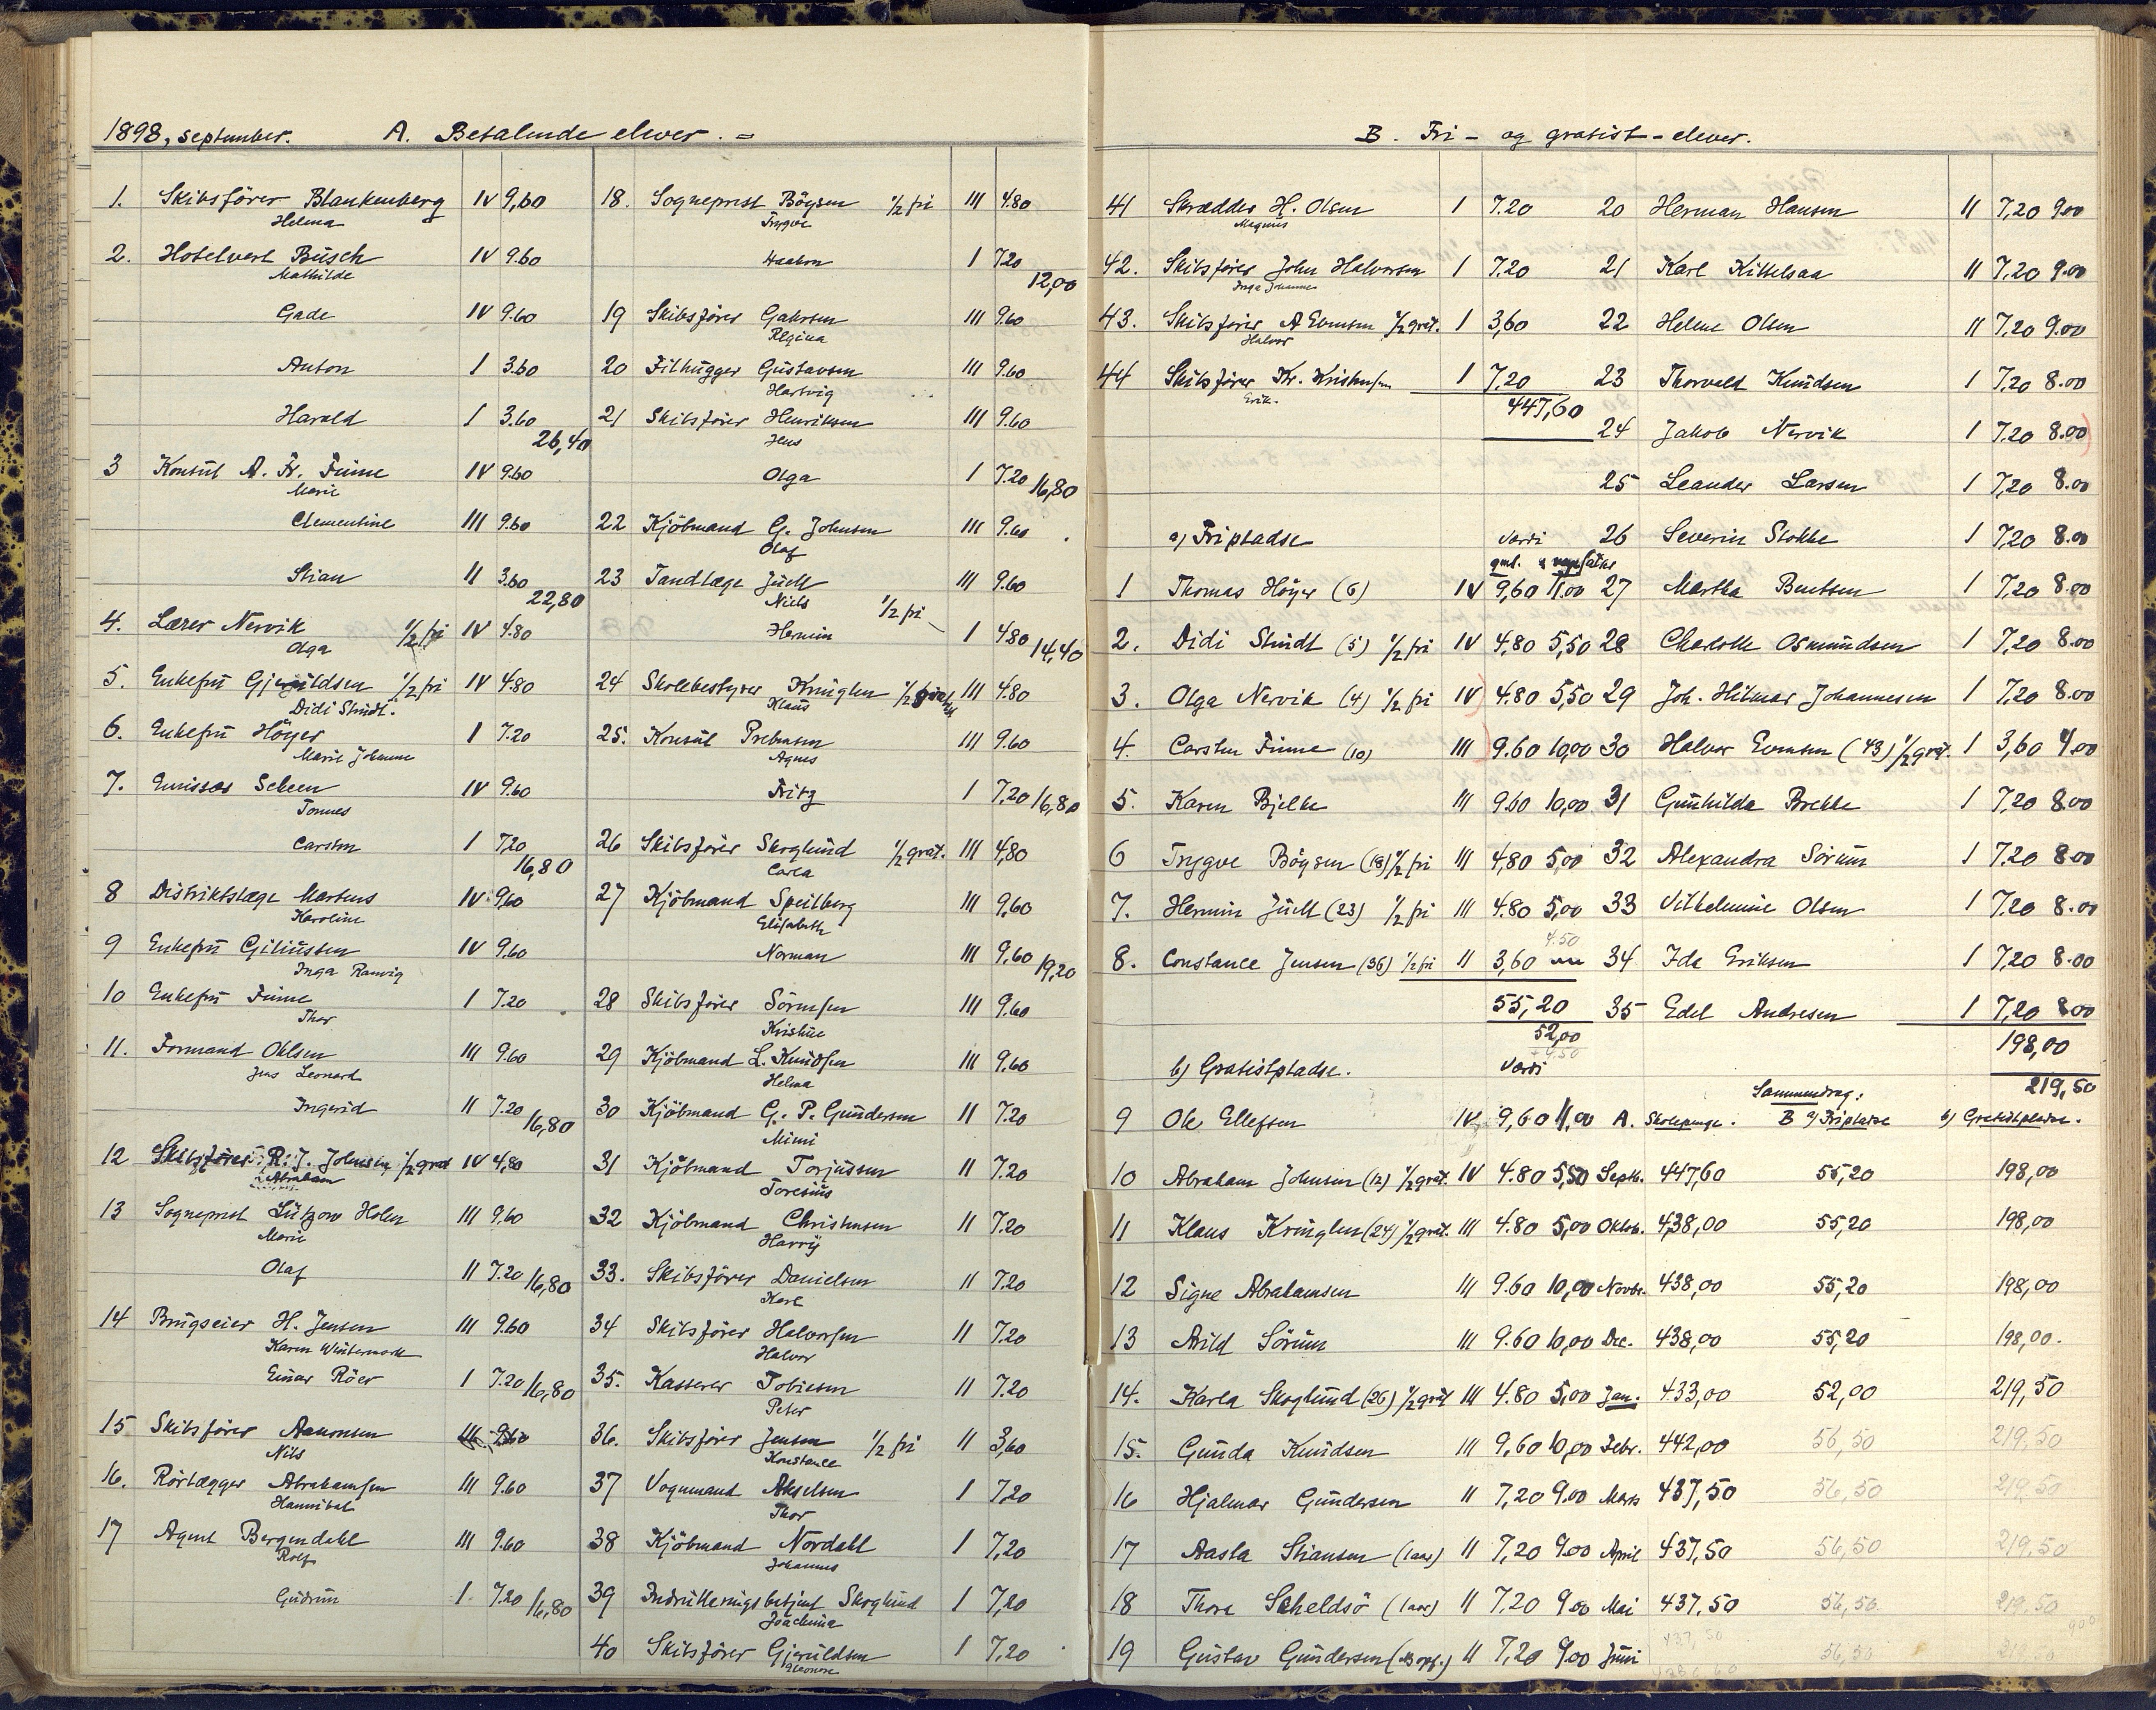 1898, september. A. Betalende elever. =
1. Skibsfører Blankenberg IV 9,60
Helma
2. Hotelvert Busch IV 9.60
Mathilde
Gade IV 9.60
Anton I 3.60
Harald I 3.60
26,40
3 Konsul A. Fr. Finne IV 9.60
Marie
Clementine III 9.60
Stian II 3.60
22,80
4. Lærer Nervik 1/2 fri IV 4.80
Olga
5. Enkefru Gjeruldsen 1/2 fri IV 4.80
Didi Stindt.
6. Enkefru Höyer I 7.20
Marie Johanne
7. Emissær Scheen IV 9.60
Tomes
Carsten I 7,20
16,80
8 Distriktslæge Martens IV 9,60
Karoline
9 Enkefru Giliussen IV 9.60
Inga Ranvig
10 Enkefru Finne I 7.20
Thor
11. Formand Ohlsen III 9.60
Jens Leonard
Ingerid II 7.20
16,80
12 Skibsfører R. J. Johnsen 1/2 grat IV 4,80
Abraham
13 Sogneprest Lützow Holm III 9,60
Marie
Olaf II 7.20 16,80
14 Brugseier H. Jensen III 9.60
Karen Wintermark
Einar Röer I 7.20 16,80
15 Skibsfører Aanonsen III 9.60
Nils
16. Rörlægger Abrahamsen III 9.60
Hannibal
17 Agent Bergendahl III 9.60
Rolf
Gudrun I 7.20 16,80
18. Sogneprest Böysen 1/2 fri III 4.80
Trygve
Haakon I 7.20
12,00
19 Skibsfører Gahrsen III 9.60
Regina
20 Filhugger Gustavsen III 9.60
Hartvig
21 Skibsfører Henriksen III 9.60
Jens
Olga I 7.20 16,80
22 Kjöbmand G. Johnsen III 9.60
Olaf
23 Tandlæge Juell III 9.60
Niels
Hermin 1/2 fri I 4.80 14,40
24 Skolebestyrer Kringlen 1/2 III 4.80
Klaus
25. Konsul Prebensen III 9.60
Agnes
Fritz I 7,20 16,80
26 Skibsfører Skoglund 1/2 grat. III 4,80
Carla
27 Kjöbmand Speilberg III 9,60
Elisabeth
Norman III 9,60 19,20
28 Skibsfører Sörensen III 9.60
Kristine
29 Kjöbmand L. Knudsen III 9.60
Helma
30 Kjöbmand G. P. Gundersen II 7.20
Mimi
31 Kjöbmand Torjussen II 7.20
Toresius
32 Kjöbmand Christensen II 7.20
Harry
33. Skibsfører Danielsen II 7.20
Karl
34 Skibsfører Halvorsen II 7.20
Halvor
35. Kasserer Tobiesen II 7.20
Peter
36. Skibsfører Jensen 1/2 fri II 3,60
Konstance
37 Vognmand Akselsen I 7,20
Thor
38 Kjöbmand Nordahl I 7,20
Johannes
39 Indrulleringsbetjent Skoglund I 7,20
Joachima
40 Skibsfører Gjeruldsen I 7,20
Eleonore
B. Fri- og gratist-elever.
41 Skrædder H. Olsen I 7.20
Magnus
42. Skibsfører John Halvorsen I 7.20
Inga Johanne
43. Skibsfører A Evensen 1/2 grat. I 3,60
Halvor
44 Skibsfører Kr. Kristensen I 7.20
Erik.
447,60
a) Fripladse Værdi
gml. nye satser
1 Thomas Höyer (6) IV 9,60 11.00
2. Didi Stindt (5) 1/2 fri IV 4.80 5,50
3. Olga Nervik (4) 1/2 fri IV 4.80 5,50
4. Carsten Finne (10) III 9.60 10,00
5. Karen Bjelke III 9.60 10,00
6 Trygve Böysen (18) 1/2 fri III 4,80 5,00
7. Hermin Juell (23) 1/2 fri III 4.80 5,00
4.50
8. Constance Jensen (36) 1/2 fri II 3,60
55,20
52,00
+4.50
b) Gratistpladse. Værdi
9 Ole Ellefsen IV 9,60 11,00
10 Abraham Johnsen (12) 1/2 grat. IV 4.80 5,50
11 Klaus Kringlen (24) 1/2 grat. III 4.80 5,00
12 Signe Abrahamsen III 9.60 10,00
13 Arild Sörum III 9.60 10,00
14. Karla Skoglund (26) 1/2 grat III 4.80 5,00
15. Gunda Knudsen III 9,60 10,00
16 Hjalmar Gundersen II 7,20 9.00
17 Aasta Stiansen (1aar) II 7,20 9.00
18 Thora Scheldsö (1aar) II 7.20 9.00
19 Gustav Gundersen II 7,20 9.00
20 Herman Hansen II 7,20 9.00
21 Karl Kittelsaa II 7,20 9.00
22 Helene Olsen II 7,20 9.00
23 Thorvald Knudsen I 7,20 8.00
24 Jakob Nervik I 7,20 8.00
25 Leander Larsen I 7,20 8.00
26 Severin Stokke I 7,20 8.00
27 Martha Bentsen I 7,20 8.00
28 Charlotte Osmundsen I 7,20 8.00
29 Joh. Hilmar Johannesen I 7,20 8.00
30 Halvor Evensen (43) 1/2 grat. I 3,60 4.00
31 Gunhilda Brekke I 7,20 8.00
32 Alexandra Sörum I 7.20 8.00
33 Vilhelmine Olsen I 7.20 8.00
34 Ida Eriksen I 7,20 8.00
35 Edel Andresen I 7,20 8.00
198,00
219,50
Sammendrag:
A. Skolepenge. B a) Fripladse b) Gratistpladse.
Septb. 447,60 55,20 198,00
Oktob. 438,00 55,20 198,00
Novbr. 438,00 55,20 198,00
Dec. 438,00 55,20 198,00.
Jan. 433,00 52,00 219,50
Febr. 442,00 56,50 219,50
Mars 437,50 56,50 219,50
April 437,50 56,50 219,50
Mai 437,50 56,50 219.50
Juni 437,50 56,50 219.50